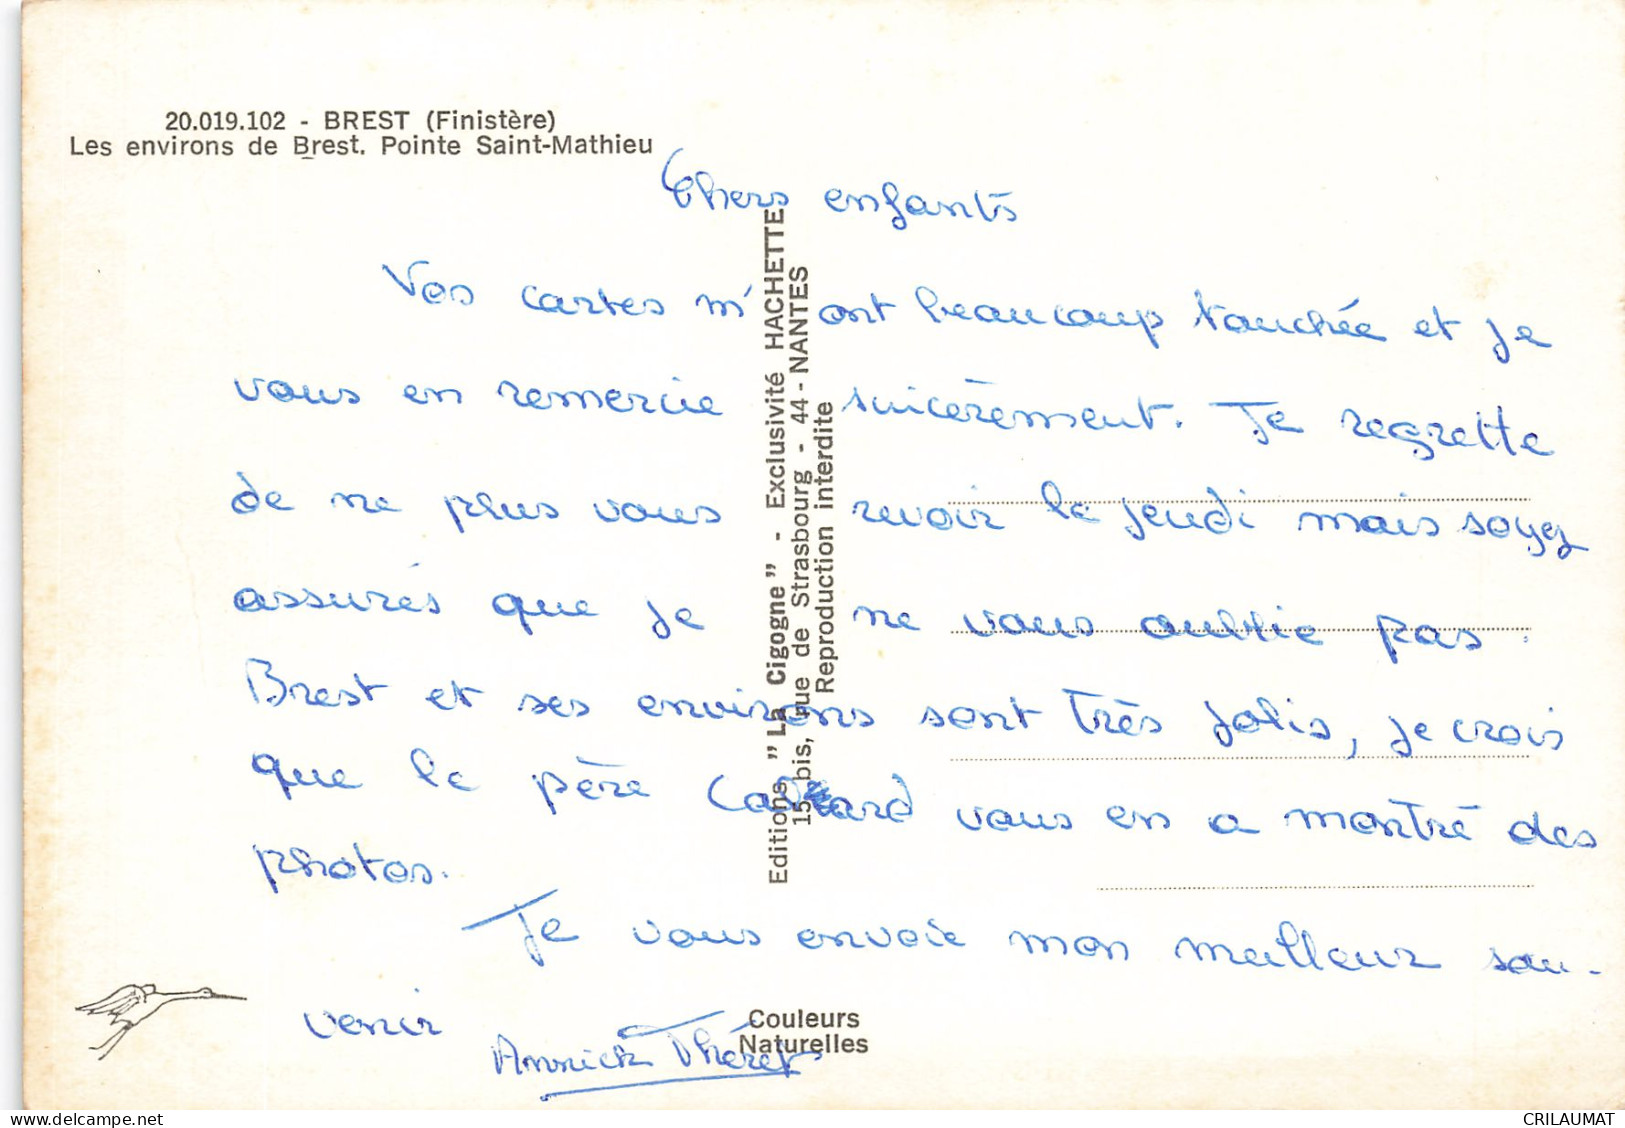 20.019.102 - BREST (Finistère)
Les environs de Brest. Pointe Saint-Mathieu
Chers enfants
Vos cartes m'ont beaucoup touchée et je
vous en remercie sincèrement. Je regrette
de ne plus vous revoir le jeudi mais soyez
assurés que je ne vous oublie pas.
Brest et ses environs sont très jolis, je crois
que le père vous en a montré des
photos.
Je vous envoie mon meilleur sou-
venir
Annick
Editions "La Cigogne" - Exclusivité HACHETTE
15 bis, rue de Strasbourg - 44 - NANTES
Reproduction interdite
Couleurs
Naturelles
delcampe.net
CRILAUMAT